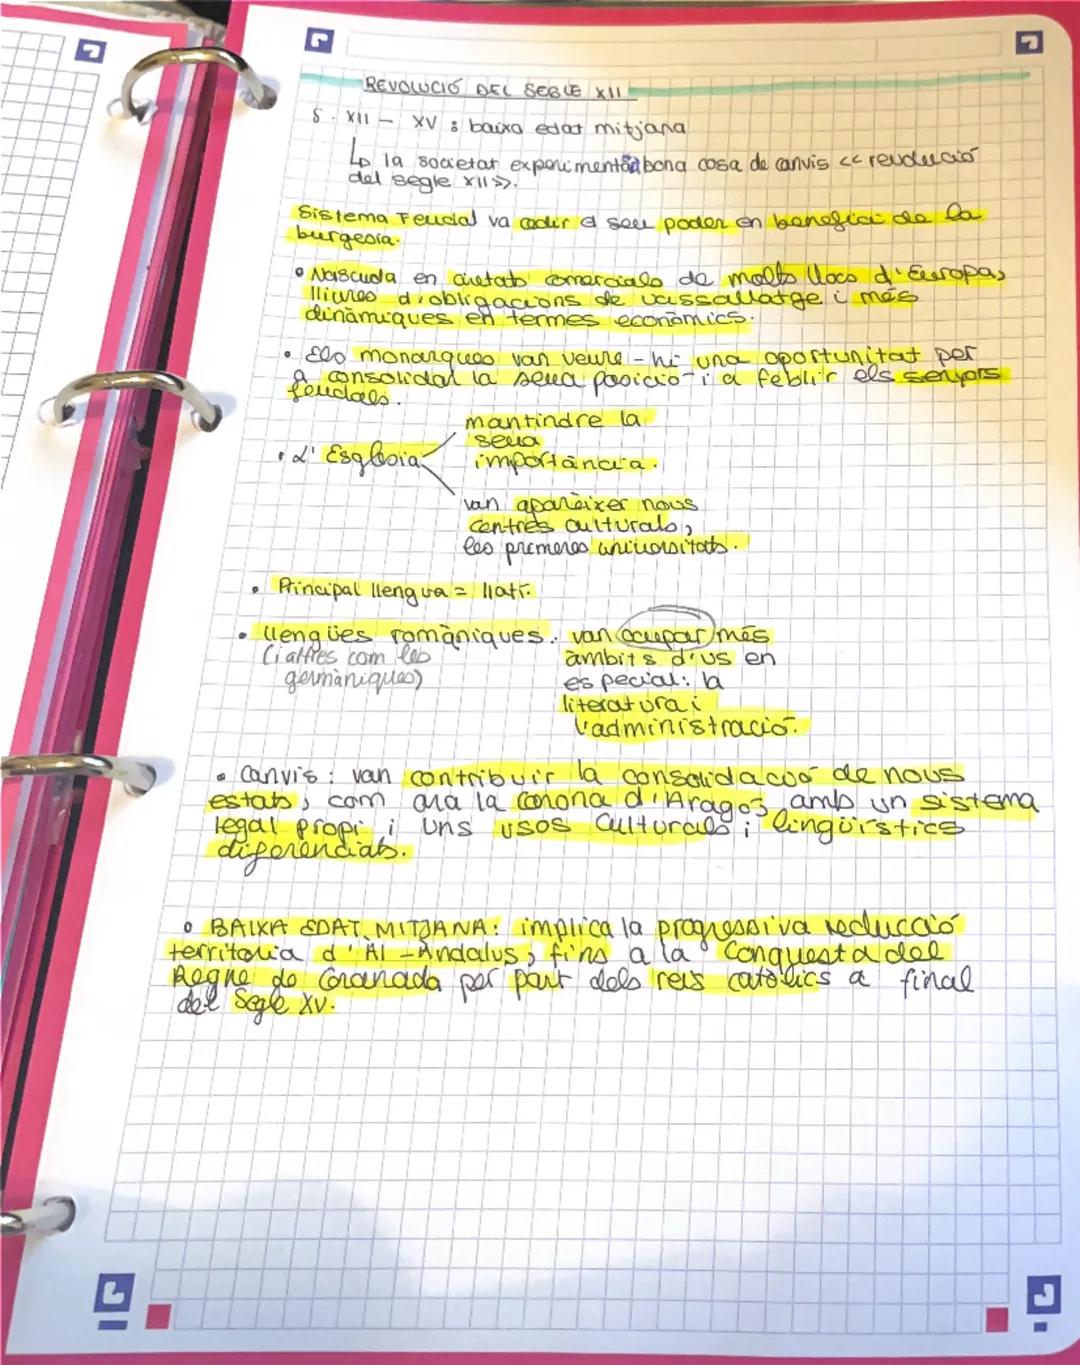 REVOLUCIÓ DEL SEGLE XII
S. XII - XV : baixa edat mitjana
↳ la societat experimentà bona cosa de canvis << revolució
del segle XII>>.
Sistema Feudal va cedir el seu poder en benefici de la
burgesia.
• Nascuda en ciutats comercials de molts llocs d'Europa,
lliures d'obligacions de vassallatge i més
dinàmiques en termes econòmics.
• Els monarques van veure-hi una oportunitat per
a consolidar la seua posició i a feblir els senyors
feudals.
mantindre la
seua
• L'Església importància.
van aparèixer nous
centres culturals,
les primeres universitats.
• Principal llengua = llatí.
• llengües romàniques. van ocupar més
(i altres com les àmbits d'us en
germàniques) especial: la
literatura i
l'administració.
• Canvis : van contribuir la consolidació de nous
estats, com ara la Corona d'Aragó, amb un sistema
legal propi i uns usos culturals i lingüístics
diferenciats.
• BAIXA EDAT MITJANA: implica la progressiva reducció
territorial d'Al-Andalus, fins a la Conquesta del
Regne de Granada per part dels reis catòlics a final
del Segle XV.